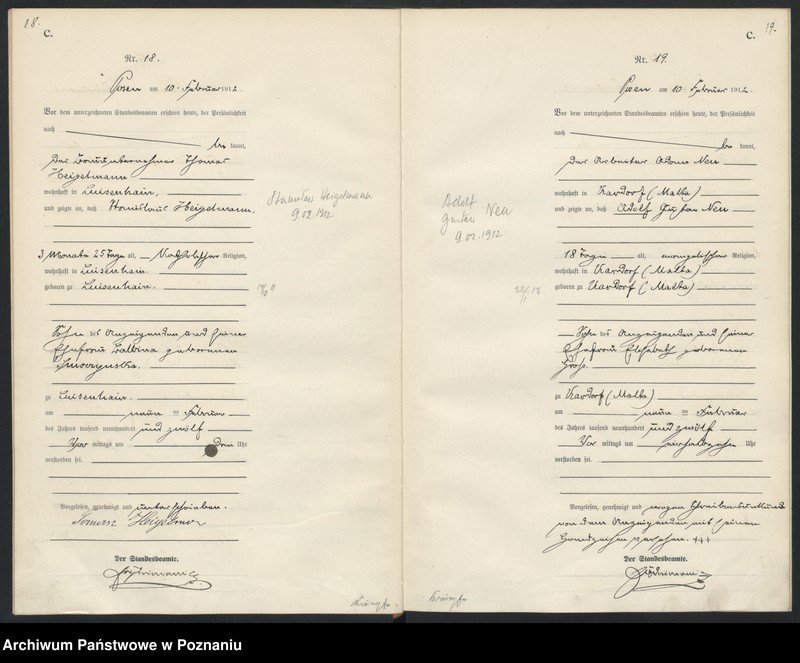 18.
C.
Nr. 18.
Posen am 10. Februar 1912.
Vor dem unterzeichneten Standesbeamten erschien heute, der Persönlichkeit
nach
be kannt,
Der Bauunternehmer Thomas
Heigelmann
wohnhaft in Luisenhain,
und zeigte an, daß Stanislaus Heigelmann,
3 Monate 25 Tage alt, Katholischer Religion,
wohnhaft in Luisenhain.
geboren zu Luisenhain.
Sohn des Anzeigenden und seiner
Ehefrau Balbina geborenen
zu Luisenhain.
am neun ten Februar
des Jahres tausend neunhundert und zwölf
Vor mittags um Drei Uhr
verstorben sei.
Vorgelesen, genehmigt und unterschrieben.
Der Standesbeamte.
Stanislaus Heigelmann
9.02.1912
Krämpfe
19.
C.
Nr. 19.
Posen am 10. Februar 1912.
Vor dem unterzeichneten Standesbeamten erschien heute, der Persönlichkeit
nach
be kannt,
Der Arbeiter Adam Neu
wohnhaft in Kardorf (Malta)
und zeigte an, daß Adolf Gustav Neu
18 Tage alt, evangelischer Religion,
wohnhaft in Kardorf (Malta)
geboren zu Kardorf (Malta)
Sohn des Anzeigenden und seiner
Ehefrau Elisabeth geborenen
Groß.
zu Kardorf (Malta)
am neun ten Februar
des Jahres tausend neunhundert und zwölf
Vor mittags um Uhr
verstorben sei.
Vorgelesen, genehmigt und wegen Schreibensunkunde
von dem Anzeigenden mit seinen
Handzeichen versehen. +++
Der Standesbeamte.
Adolf
Gustav Neu
9.02.1912
Krämpfe
Archiwum Państwowe w Poznaniu